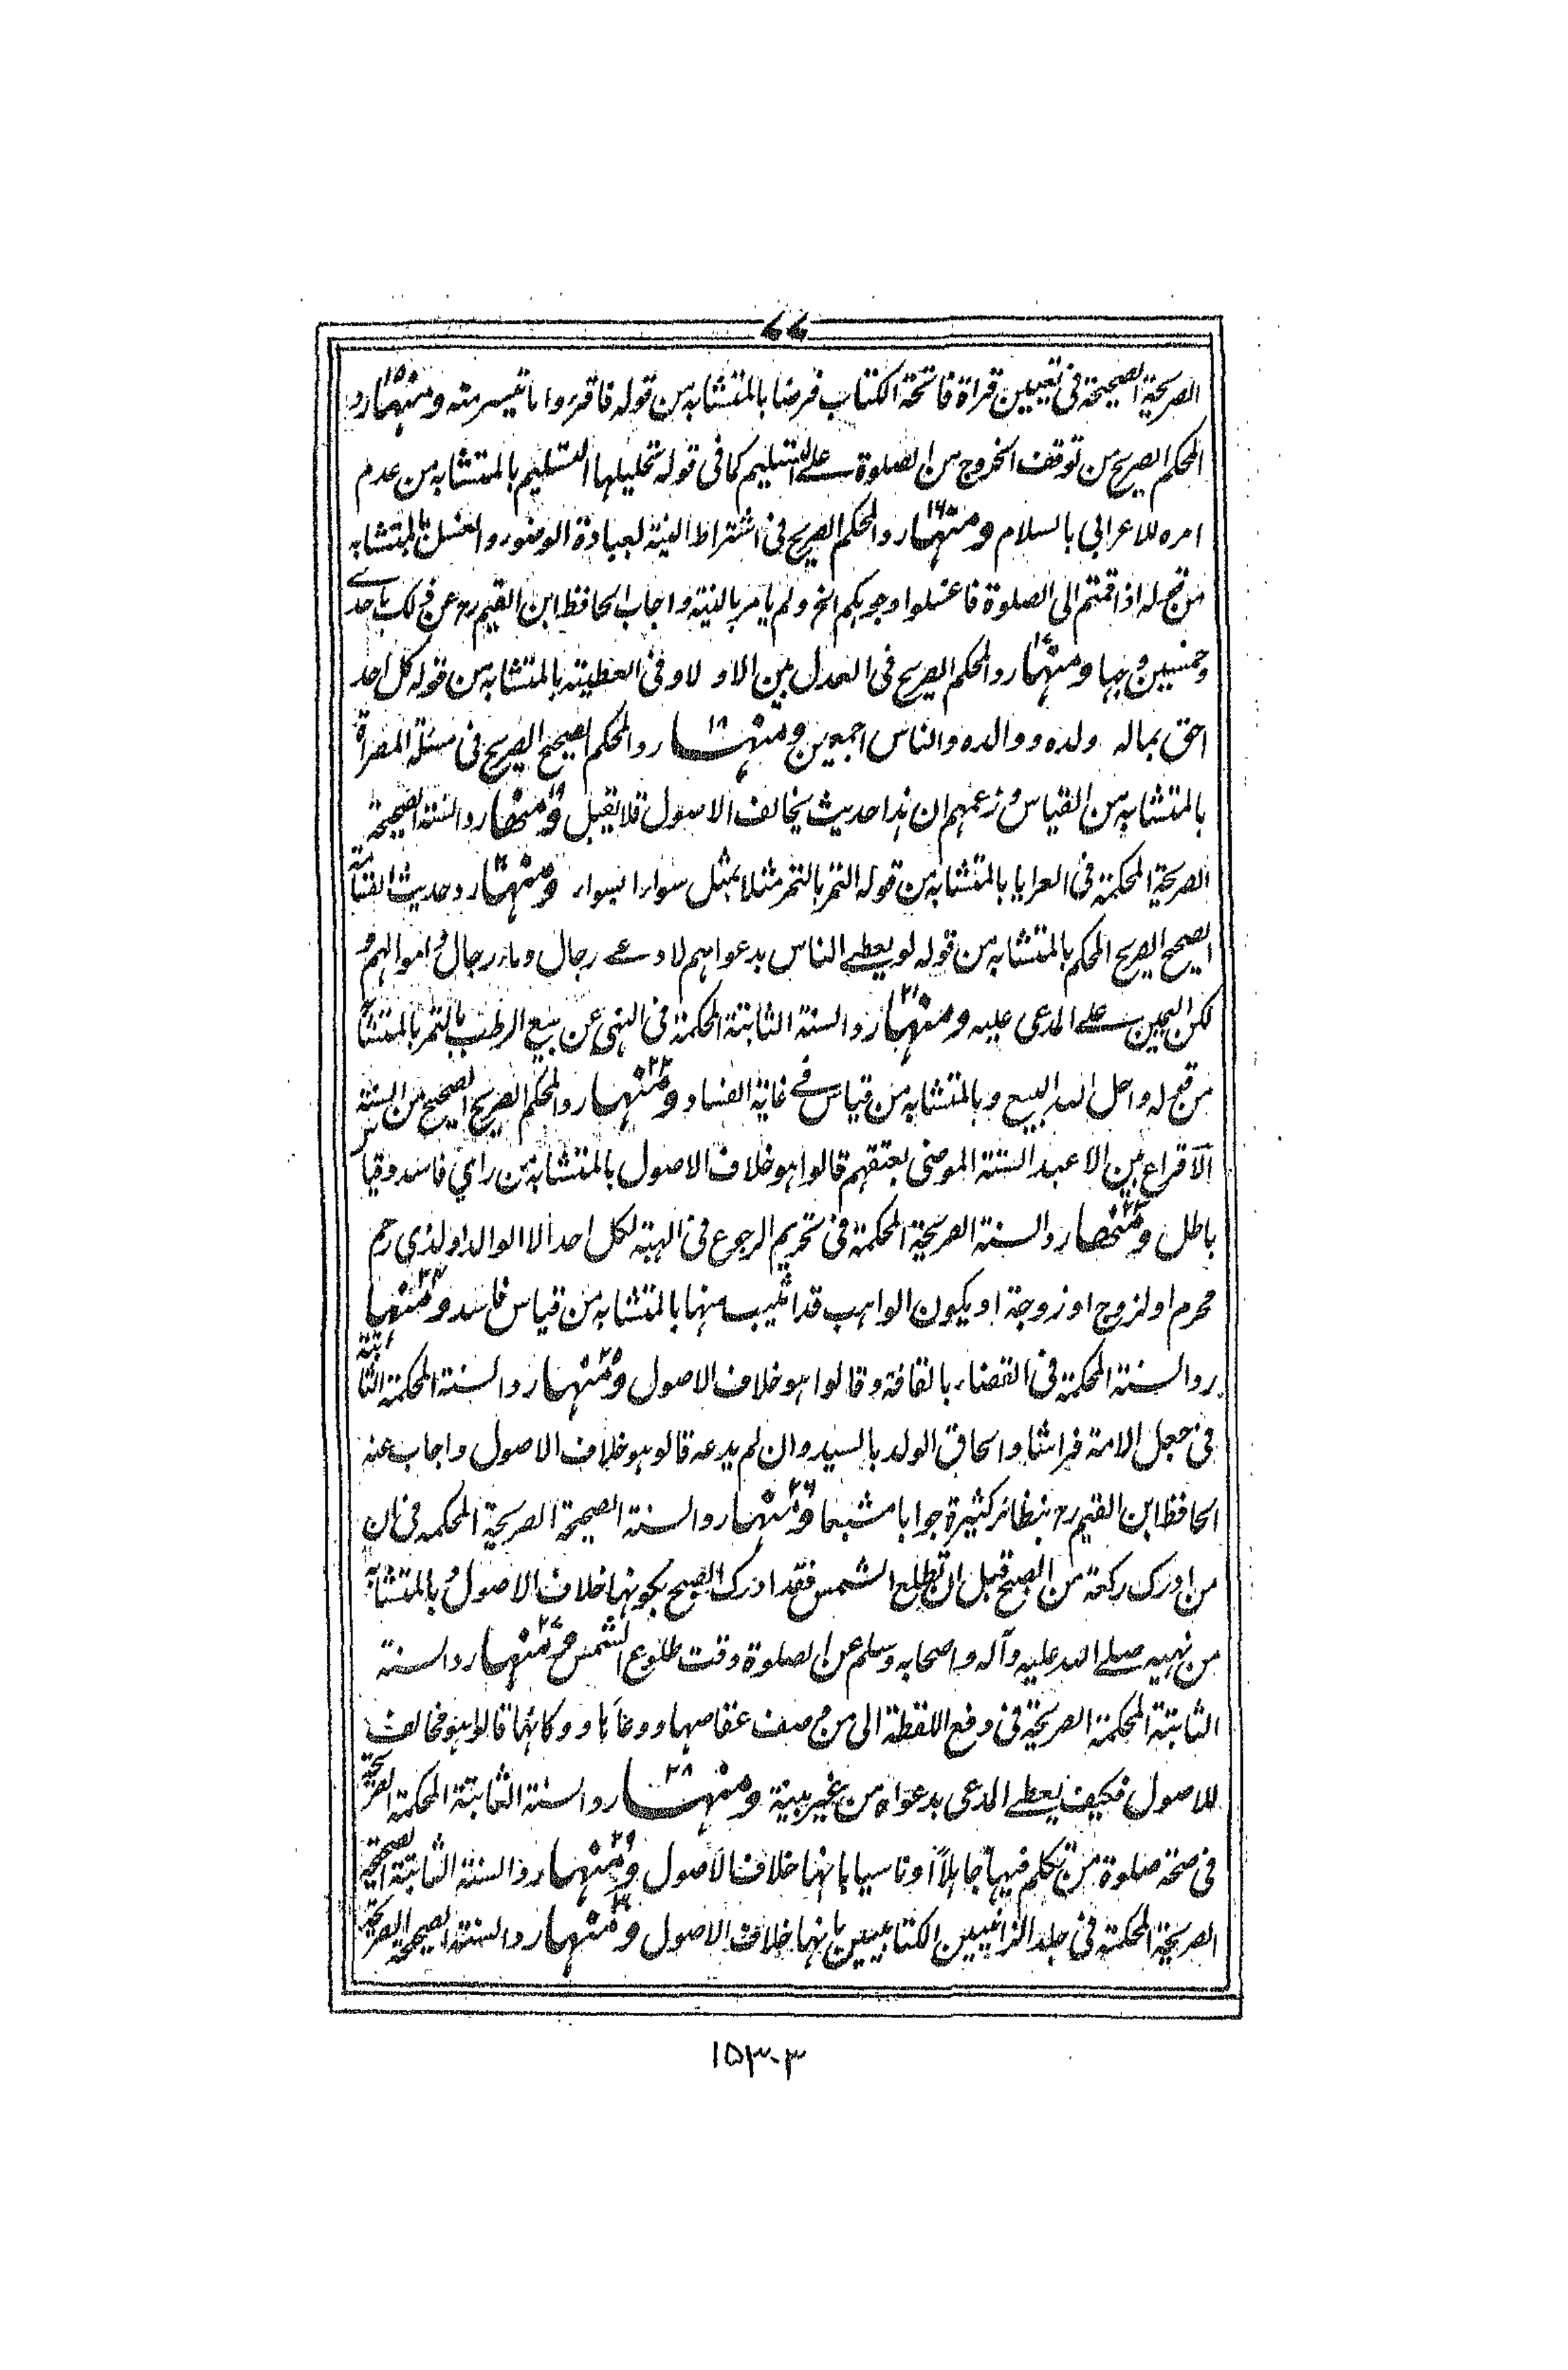 ۷۷
الصريحة الصحيحة فی تعيين قراة فاتحة الكتاب فرضا بالمتشابه من قوله فاقرؤا ما تيسر منه ومنها ۱۵ رد
المحكم الصريح من توقف الخروج من الصلوة علے التسليم كما فی قوله تحليلها التسليم بالمتشابه من عدم
امره للاعرابی بالسلام ومنها ۱۶ رد المحكم الصريح فی اشتراط النية لعبادة الوضوء والغسل بالمتشابه
من قوله اذا قمتم الی الصلوة فاغسلوا وجوهكم الخ ولم يامر بالنية واجاب الحافظ ابن القيم رح عن ذلك باحدے
وخمسين وجها ومنها ۱۷ رد المحكم الصريح فی العدل بين الاولاد فی العطية بالمتشابه من قوله كل احد
احق بماله ولده ووالده والناس اجمعين ومنها ۱۸ رد المحكم الصحيح الصريح فی مسئلة المصراة
بالمتشابه من القياس وزعمهم ان هذا حديث يخالف الاصول فلا يقبل ومنها ۱۹ رد السنة الصحيحة
الصريحة المحكمة فی العرايا بالمتشابه من قوله التمر بالتمر مثلا بمثل سواءا بسواء ومنها ۲۰ رد حديث القسامة
الصحيح الصريح المحكم بالمتشابه من قوله لو يعطے الناس بدعواهم لادعے رجال دماء رجال واموالهم و
لكن اليمين علے المدعی عليه ومنها ۲۱ رد السنة الثابتة المحكمة فی النهی عن بيع الرطب بالتمر بالمتشابه
من قوله واحل الله البيع وبالمتشابه من قياس فے غاية الفساد ومنها ۲۲ رد المحكم الصريح الصحيح من السنة
الاقراع بين الاعبد الستة الموصی بعتقهم قالوا هو خلاف الاصول بالمتشابه من رای فاسد وقياس
باطل ومنها ۲۳ رد السنة الصريحة المحكمة فی تحريم الرجوع فی الهبة لكل احد الا الوالد او لذی رحم
محرم او لزوج او زوجة او يكون الواهب قد اثيب منها بالمتشابه من قياس فاسد ومنها ۲۴
رد السنة المحكمة فی القضاء بالقافة وقالوا هو خلاف الاصول ومنها ۲۵ رد السنة المحكمة الثابتة
فی جعل الامة فراشا والحاق الولد بالسيد وان لم يدعه قالو هو خلاف الاصول واجاب عنه
الحافظ ابن القيم رح بنظائر كثيرة جوابا مشبعا ومنها ۲۶ رد السنة الصحيحة الصريحة المحكمه فی ان
من ادرك ركعة من الصبح قبل ان تطلع الشمس فقد ادرك الصبح بكونها خلاف الاصول وبالمتشابه
من نهيه صلے الله عليه وآله واصحابه وسلم عن الصلوة وقت طلوع الشمس ومنها ۲۷ رد السنة
الثابتة المحكمة الصريحة فی دفع اللقطة الی من وصف عفاصها ووعاءها ووكائها قالوا هو مخالف
للاصول فكيف يعطے المدعی بدعواه من غير بينة ومنها ۲۸ رد السنة الثابتة المحكمة الصريحة
فی صحة صلوة من تكلم فيها جاهلاً او ناسيا بانها خلاف الاصول ومنها ۲۹ رد السنة الثابتة الصحيحة
الصريحة المحكمة فی جلد الزانيين الكتابيين بانها خلاف الاصول ومنها ۳۰ رد السنة الصحيحة الصريحة
۱۵۳۰۳